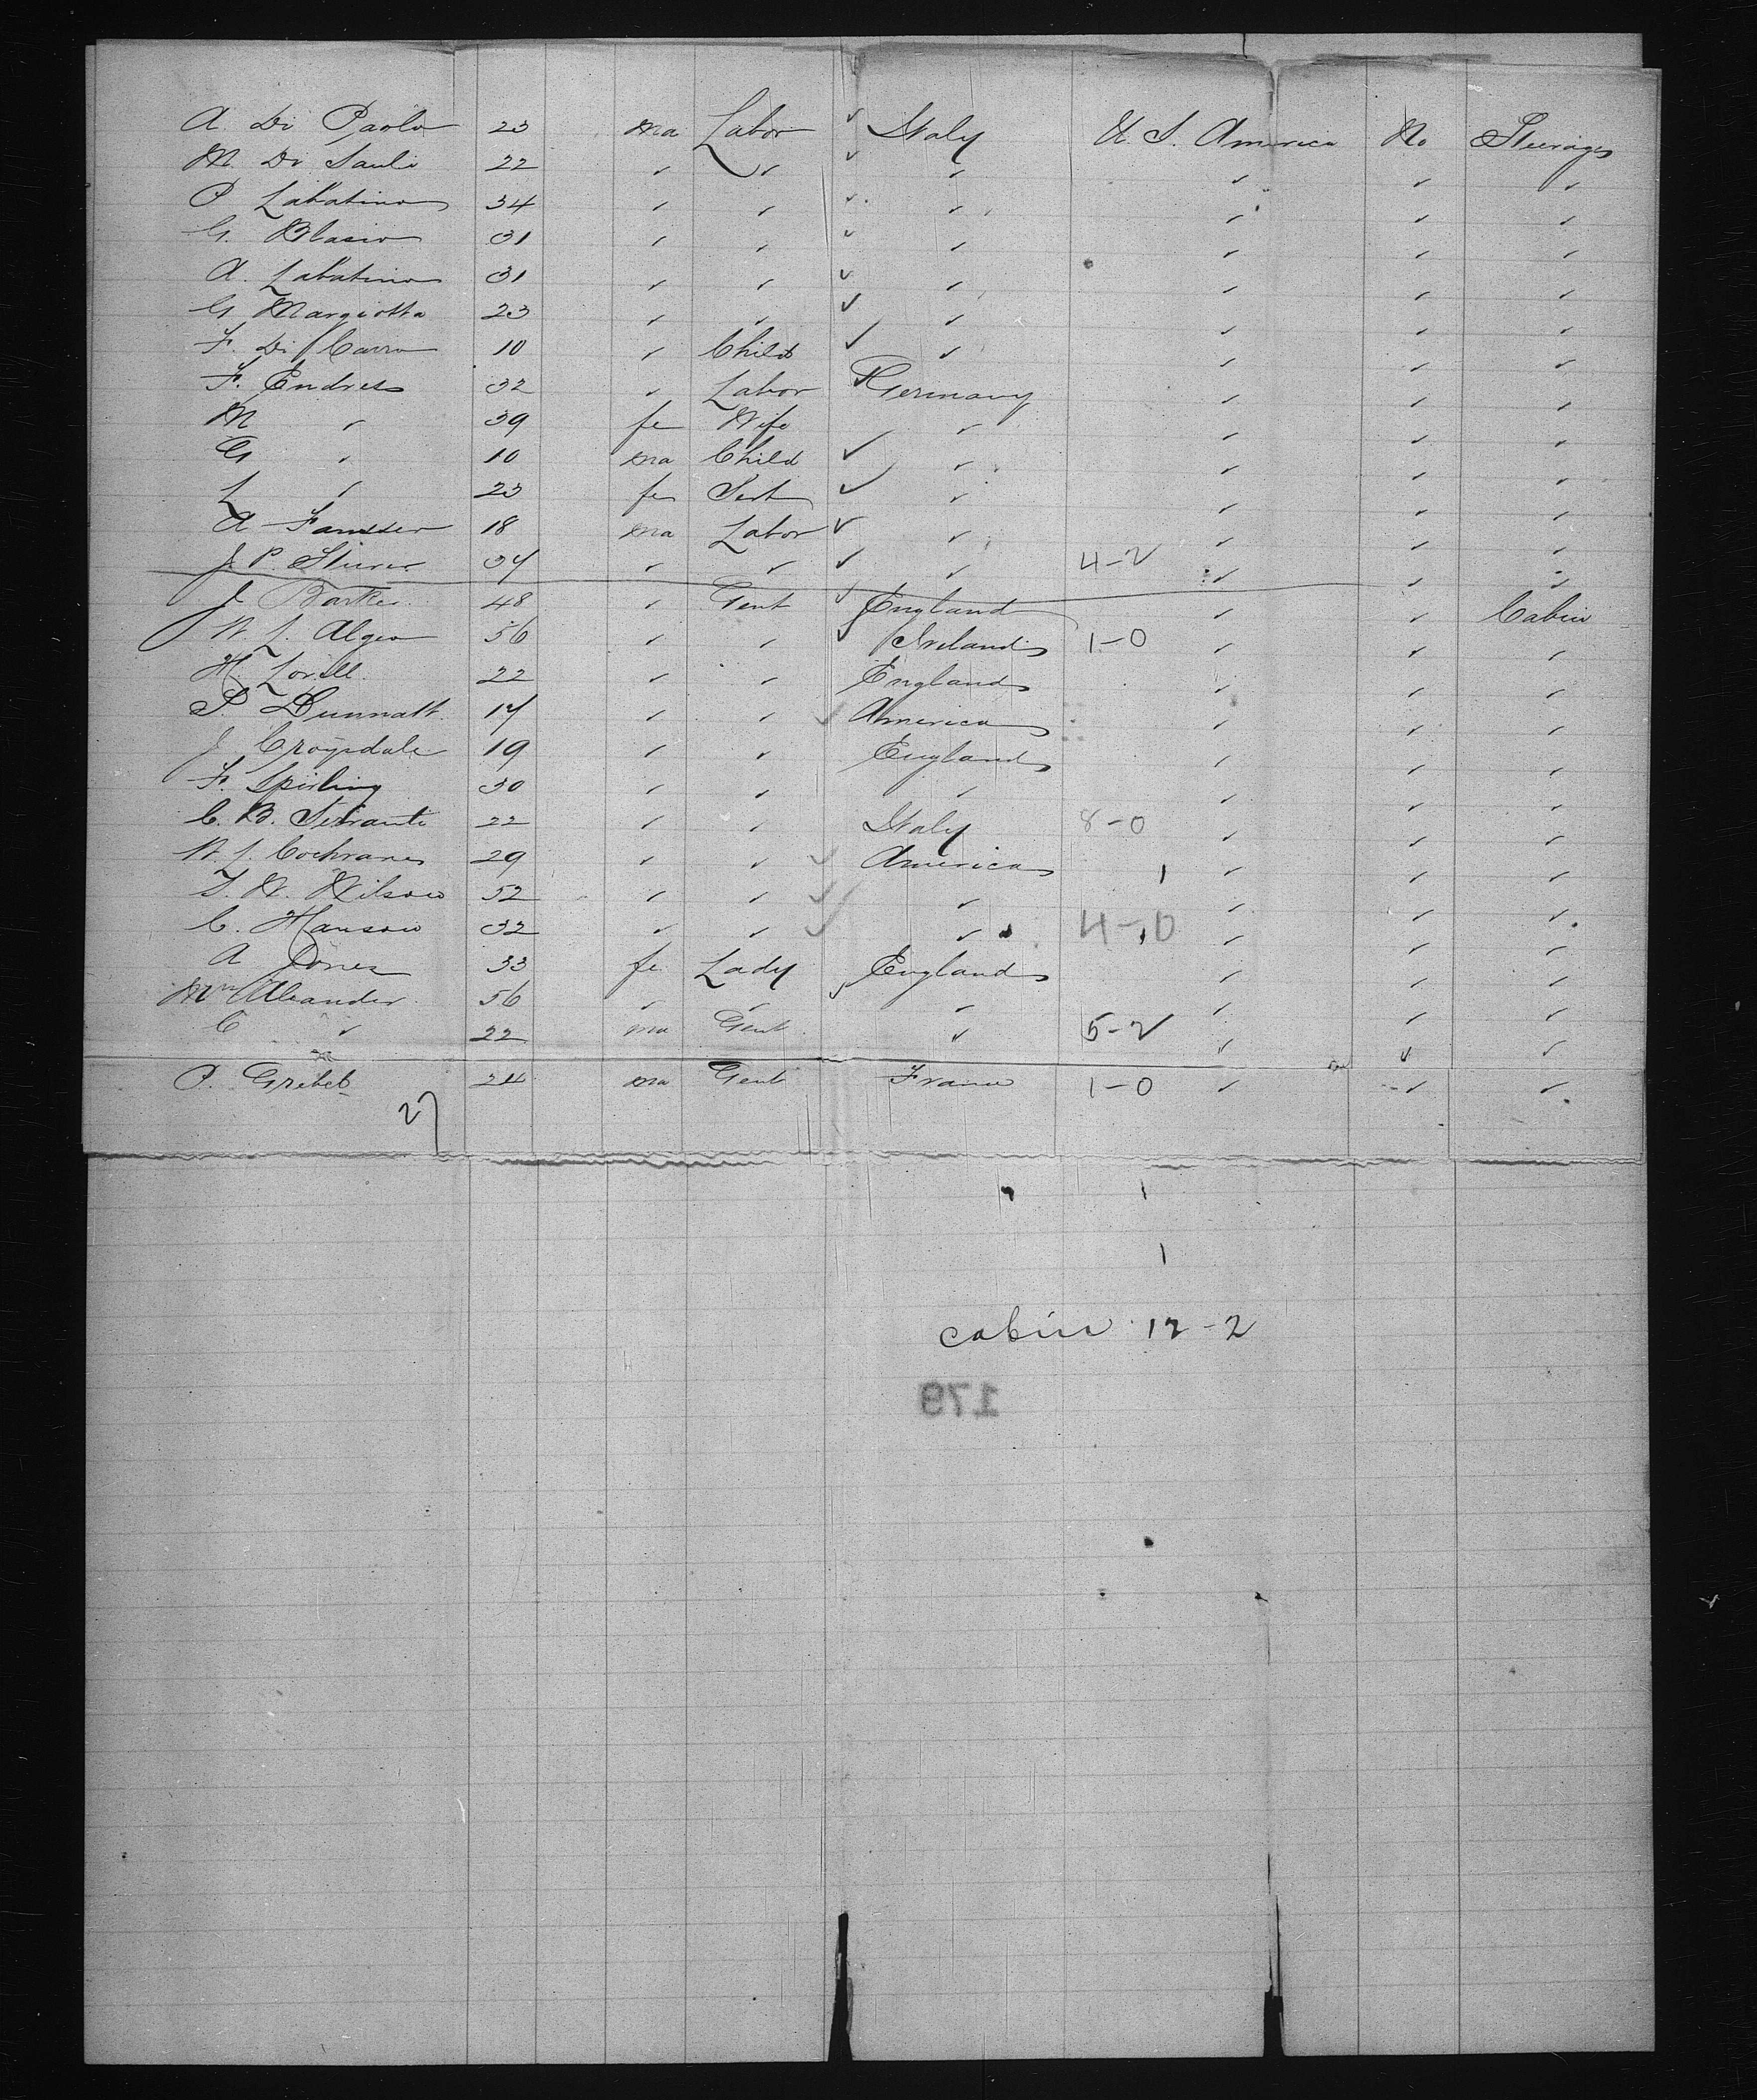 A. Di Paolo 23 ma Labor ✓ Italy U. S. America No Steerage
M. Di Sauli 22 " " ✓ " " " "
P Labatino 34 " " ✓ " " " "
G. Blasio 31 " " ✓ " " " "
A. Labatino 31 " " ✓ " " " "
G Margiotta 23 " " ✓ " " " "
F. Di Carro 10 " Child ✓ " " " "
F. Endres 32 " Labor ✓ Germany " " "
M " 39 fe Wife " " " "
G " 10 ma Child ✓ " " " "
L " 23 fe ✓ " " " "
A 18 ma Labor ✓ " " " "
J. P. 34 " " ✓ " 4-2 " " "
J Barker 48 " Gent ✓ England " " Cabin
W. J. Algeo 56 " " ✓ Ireland 1-0 " " "
H. Lovell 22 " " England " " "
S. Dunnatt 17 " " ✓ America " " "
J Croysdale 19 " " England " " "
F. Spirling 30 " " " " " "
C. B. Serranti 22 " " Italy 8-0 " " "
W. J. Cochrane 29 " " ✓ America 1 " " "
T. W. Wilson 52 " " ✓ " " " "
C. Hanson 32 " " ✓ " 4-0 " " "
A Jones 33 fe Lady England " " "
Mrs Alexander 56 " " ✓ " " " "
C " 22 ma Gent " 5-2 " " "
P. Grebel 24 ma Gent France 1-0 " " "
27
1
1
cabin 12-2
179